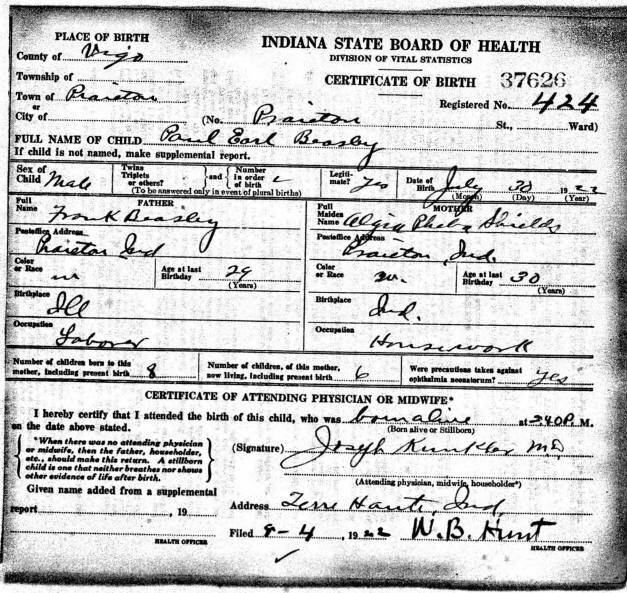 PLACE OF BIRTH
INDIANA STATE BOARD OF HEALTH
DIVISION OF VITAL STATISTICS
CERTIFICATE OF BIRTH 37626
County of Vigo
Township of
Town of Prairton
or
City of
Registered No. 424
(No. Prairton St., Ward)
FULL NAME OF CHILD Paul Earl Beasley
If child is not named, make supplemental report.
Sex of Child Male
Twins Triplets or others?
and
Number in order of birth
(To be answered only in event of plural births)
Legiti- mate? yes
Date of Birth July 30 1922
(Month) (Day) (Year)
FATHER
Full Name Frank Beasley
MOTHER
Full Maiden Name Pheba Shields
Postoffice Address
Prairton Ind
Postoffice Address
Prairton, Ind.
Color or Race w
Age at last Birthday 29
(Years)
Color or Race w.
Age at last Birthday 30
(Years)
Birthplace
Ill
Birthplace
Ind.
Occupation
Laborer
Occupation
Housework
Number of children born to this mother, including present birth 8
Number of children, of this mother, now living, including present birth 6
Were precautions taken against ophthalmia neonatorum? yes
CERTIFICATE OF ATTENDING PHYSICIAN OR MIDWIFE*
I hereby certify that I attended the birth of this child, who was born alive at 240 P. M.
(Born alive or Stillborn)
on the date above stated.
*When there was no attending physician
or midwife, then the father, householder,
etc., should make this return. A stillborn
child is one that neither breathes nor shows
other evidence of life after birth.
(Signature) Joseph Kunkler MD
(Attending physician, midwife, householder*)
Given name added from a supplemental
report , 19
HEALTH OFFICER
Address Terre Haute, Ind,
Filed 8-4, 1922 W.B. Hunt
HEALTH OFFICER